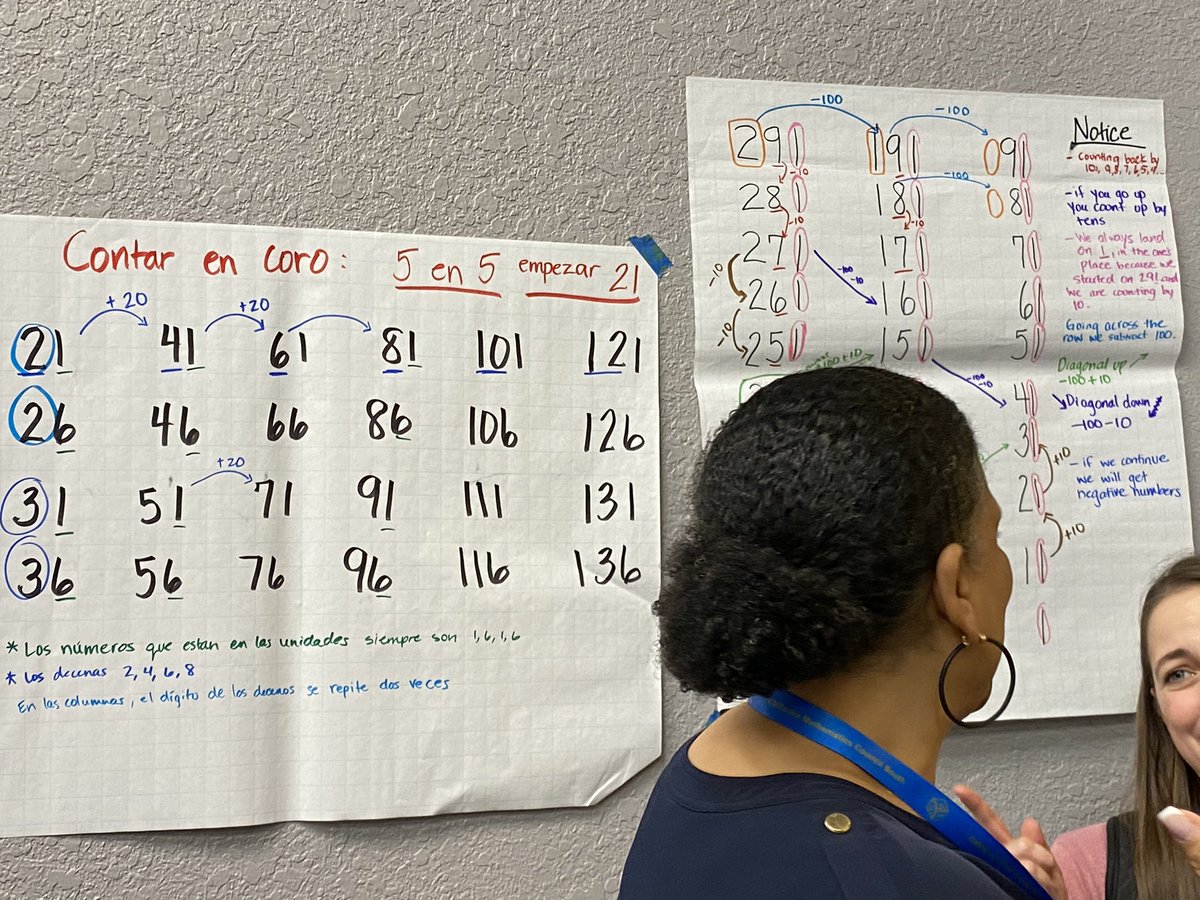 Contar en coro: 5 en 5 empezar 21
+20 +20
21 41 61 81 101 121
26 46 66 86 106 126
+20
31 51 71 91 111 131
36 56 76 96 116 136
* Los números que estan en las unidades siempre son 1,6,1,6
* Los decenas 2, 4, 6, 8
En las columnas, el dígito de los decenas se repite dos veces
-100 -100
291 191 091
-10 -100
281 181 081
-10 -10
271 171 71
-10 -100 -10
261 161 61
-10
251 151 50
100+10
-100 -10
41
31
+10
21
+10
11
1
Notice
- Counting back by
10s, 9,8,7,6,5,4...
- if you go up
you count up by
tens
- We always land
on 1, in the ones
place because we
started on 291 and
we are counting by
10.
Going across the
row we subtract 100.
Diagonal up
-100+10
Diagonal down
-100-10
- if we continue
we will get
negative numbers
California Mathematics Council South